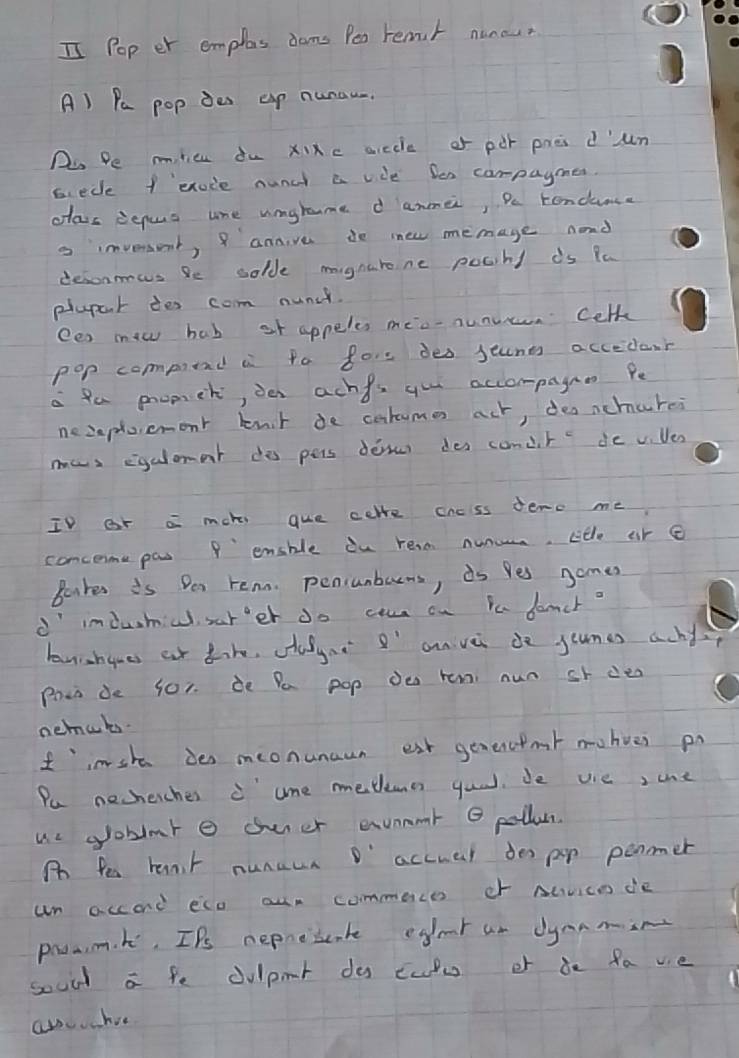 II Pop et emplois dans les territ ruraux
A) La pop des esp ruraux.
Ds le milieu du XIXe siecle et pdt près d'un
siecle l'exode rural a vidé les campagnes.
Mais depuis une vingtaine d'année, la tendance
s'inversent, l'arrivée de new menage rend
desormais le solde migratoire positif ds la
plupart des com rural.
Ces new hab st appelés néo-ruraux. Cette
pop comprend à la fois des jeunes accedant
à la propriété, des actifs qui accompagne le
redeploiement territ de certaines act, des retraités
mais egalement des pers démuni des condit° de villes
Il est à noter que cette croiss demo ne
concerne pas l'ensble du terri ruraux. Elle est ⊕
fortes ds les terri. periurbains, ds les zones
d'industrialisat° et ds ceux où la fonct°
touristiques est forte. Malgré l'arrivée de jeunes actifs,
près de 40% de la pop des terri rur st des
retraités.
L'insta des neoruraux est generalmt motivée pr
la recherches d'une meilleures qual. de vie, une
vie globlmt ⊖ cher et environmt ⊖ pollué.
Pr les territ ruraux l'accueil des pop permet
un accord eco aux commerces et services de
proximité. Ils represente eglmt un dynamisme
social à le dvlpmt des et de la vie
associative